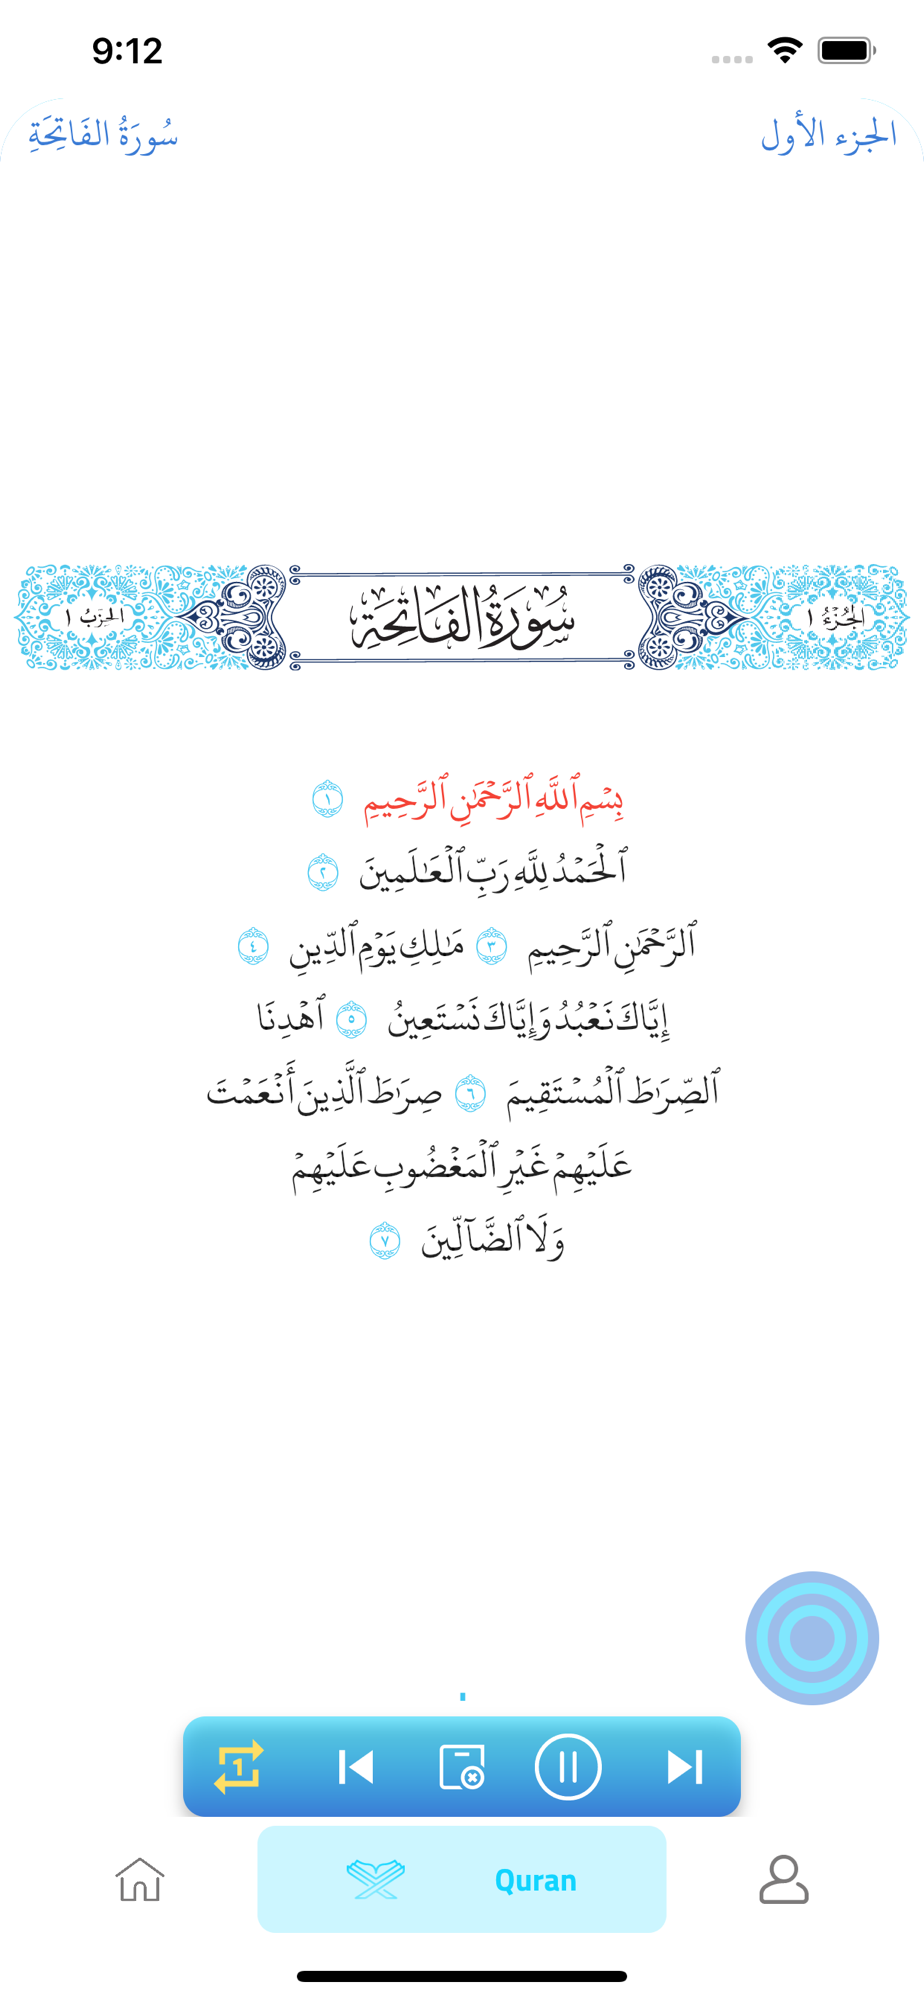 9:12
الجزء الأول
سُورَةُ الفَاتِحَةِ
الجُزْءُ ١
سُورَةُ الفَاتِحَة
الحِزْبُ ١
بِسْمِ ٱللَّهِ ٱلرَّحْمَٰنِ ٱلرَّحِيمِ ١
ٱلْحَمْدُ لِلَّهِ رَبِّ ٱلْعَٰلَمِينَ ٢
ٱلرَّحْمَٰنِ ٱلرَّحِيمِ ٣ مَٰلِكِ يَوْمِ ٱلدِّينِ ٤
إِيَّاكَ نَعْبُدُ وَإِيَّاكَ نَسْتَعِينُ ٥ ٱهْدِنَا
ٱلصِّرَٰطَ ٱلْمُسْتَقِيمَ ٦ صِرَٰطَ ٱلَّذِينَ أَنْعَمْتَ
عَلَيْهِمْ غَيْرِ ٱلْمَغْضُوبِ عَلَيْهِمْ
وَلَا ٱلضَّآلِّينَ ٧
1
Quran